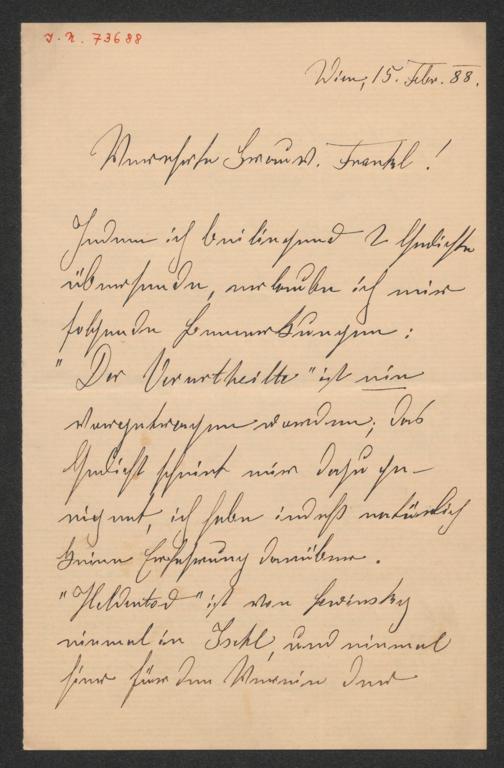 J. N. 73688
Wien, 15. Febr. 88.
Verehrte Frau v. Frankl!
Indem ich beiliegend 2 Gedichte
übersende, erlaube ich mir
folgende Bemerkungen:
"Der Verurtheilte" ist nie
vorgetragen worden; das
Gedicht scheint mir dazu ge-
eignet, ich habe indeß natürlich
keine Erfahrung darüber.
"Heldentod" ist von Lewinsky
einmal in Ischl, und einmal
hier für den Verein der